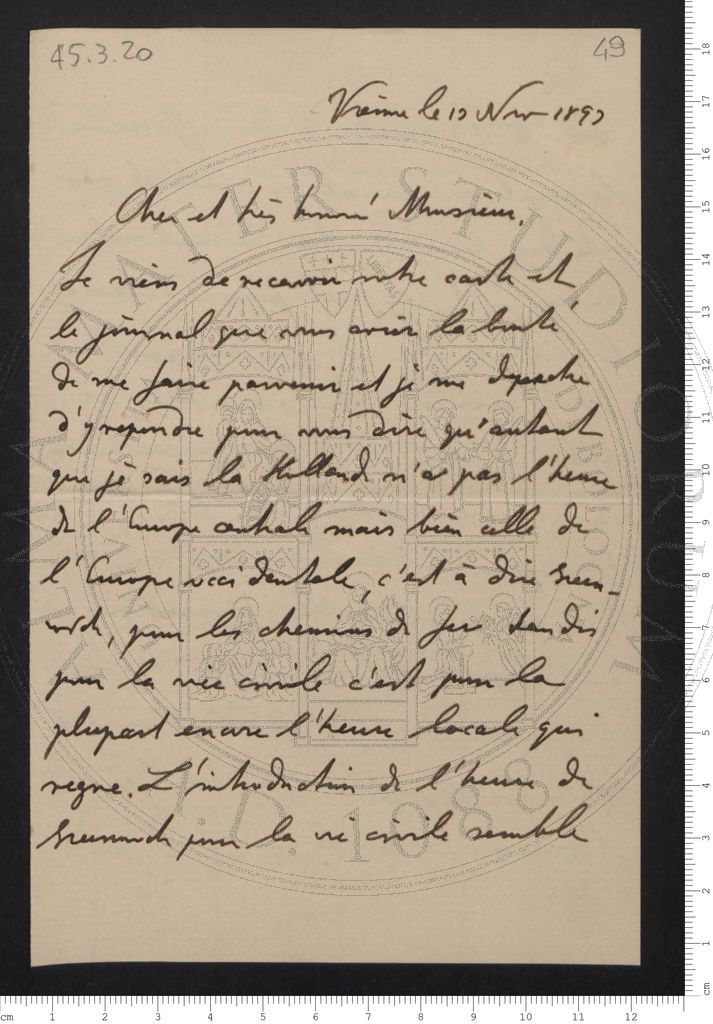 45.3.20
49
Vienne le 13 Nov 1893
Cher et très honoré Monsieur.
Je viens de recevoir votre carte et
le journal que vous aviez la bonté
de me faire parvenir et je me depeche
d'y repondre pour vous dire qu'autant
que je sais la Hollande n'a pas l'heure
de l'Europe centrale mais bien celle de
l'Europe occidentale, c'est à dire Green-
wich, pour les chemins de fer tandis
pour la vie civile c'est pour la
plupart encore l'heure locale qui
regne. L'introduction de l'heure de
Greenwich pour la vie civile semble
ALMA MATER STUDIORUM
A.D. 1088
cm
18
17
16
15
14
13
12
11
10
9
8
7
6
5
4
3
2
1
cm
cm 1 2 3 4 5 6 7 8 9 10 11 12